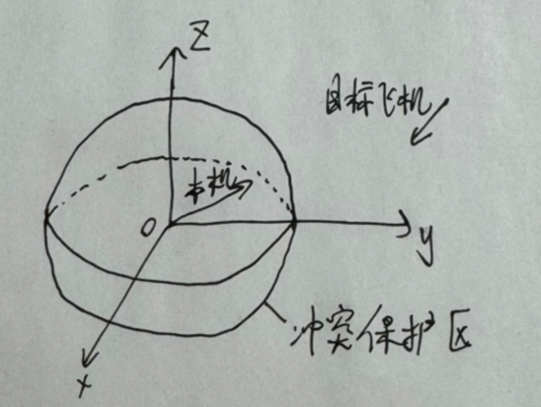 Z
目标飞机
本机
O
y
冲突保护区
x